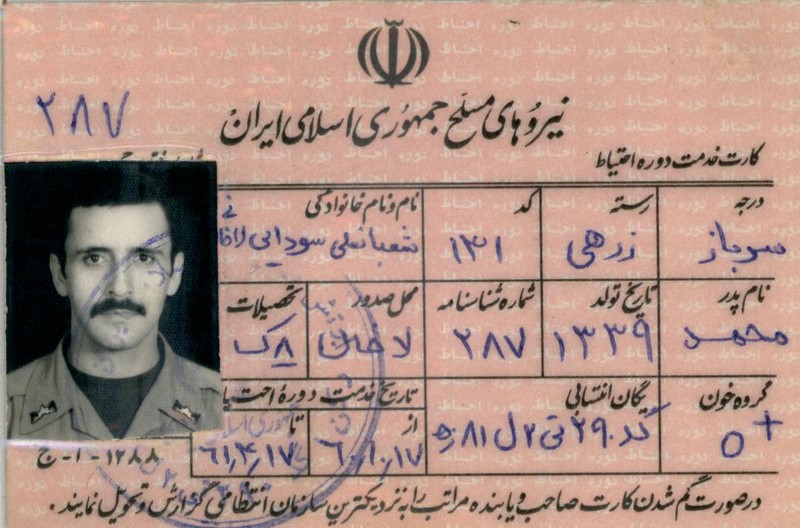 ۲۸۷
نیروهای مسلح جمهوری اسلامی ایران
کارت خدمت دوره احتیاط
درجه رسته کد نام و نام خانوادگی
سرباز زرهی ۱۳۱ شعبانعلی سودایی
نام پدر تاریخ تولد شماره شناسنامه محل صدور تحصیلات
محمد ۱۳۳۹ ۲۸۷
گروه خون یگان انتسابی تاریخ خدمت دوره احتیاط
از تا
O+ ۶۰,۱۰,۱۷ ۶۱,۴,۱۷
۱۲۸۸-۱-ج
درصورت گم شدن کارت صاحب و یابنده مراتب را به نزدیکترین سازمان انتظامی گزارش و تحویل نمایند.